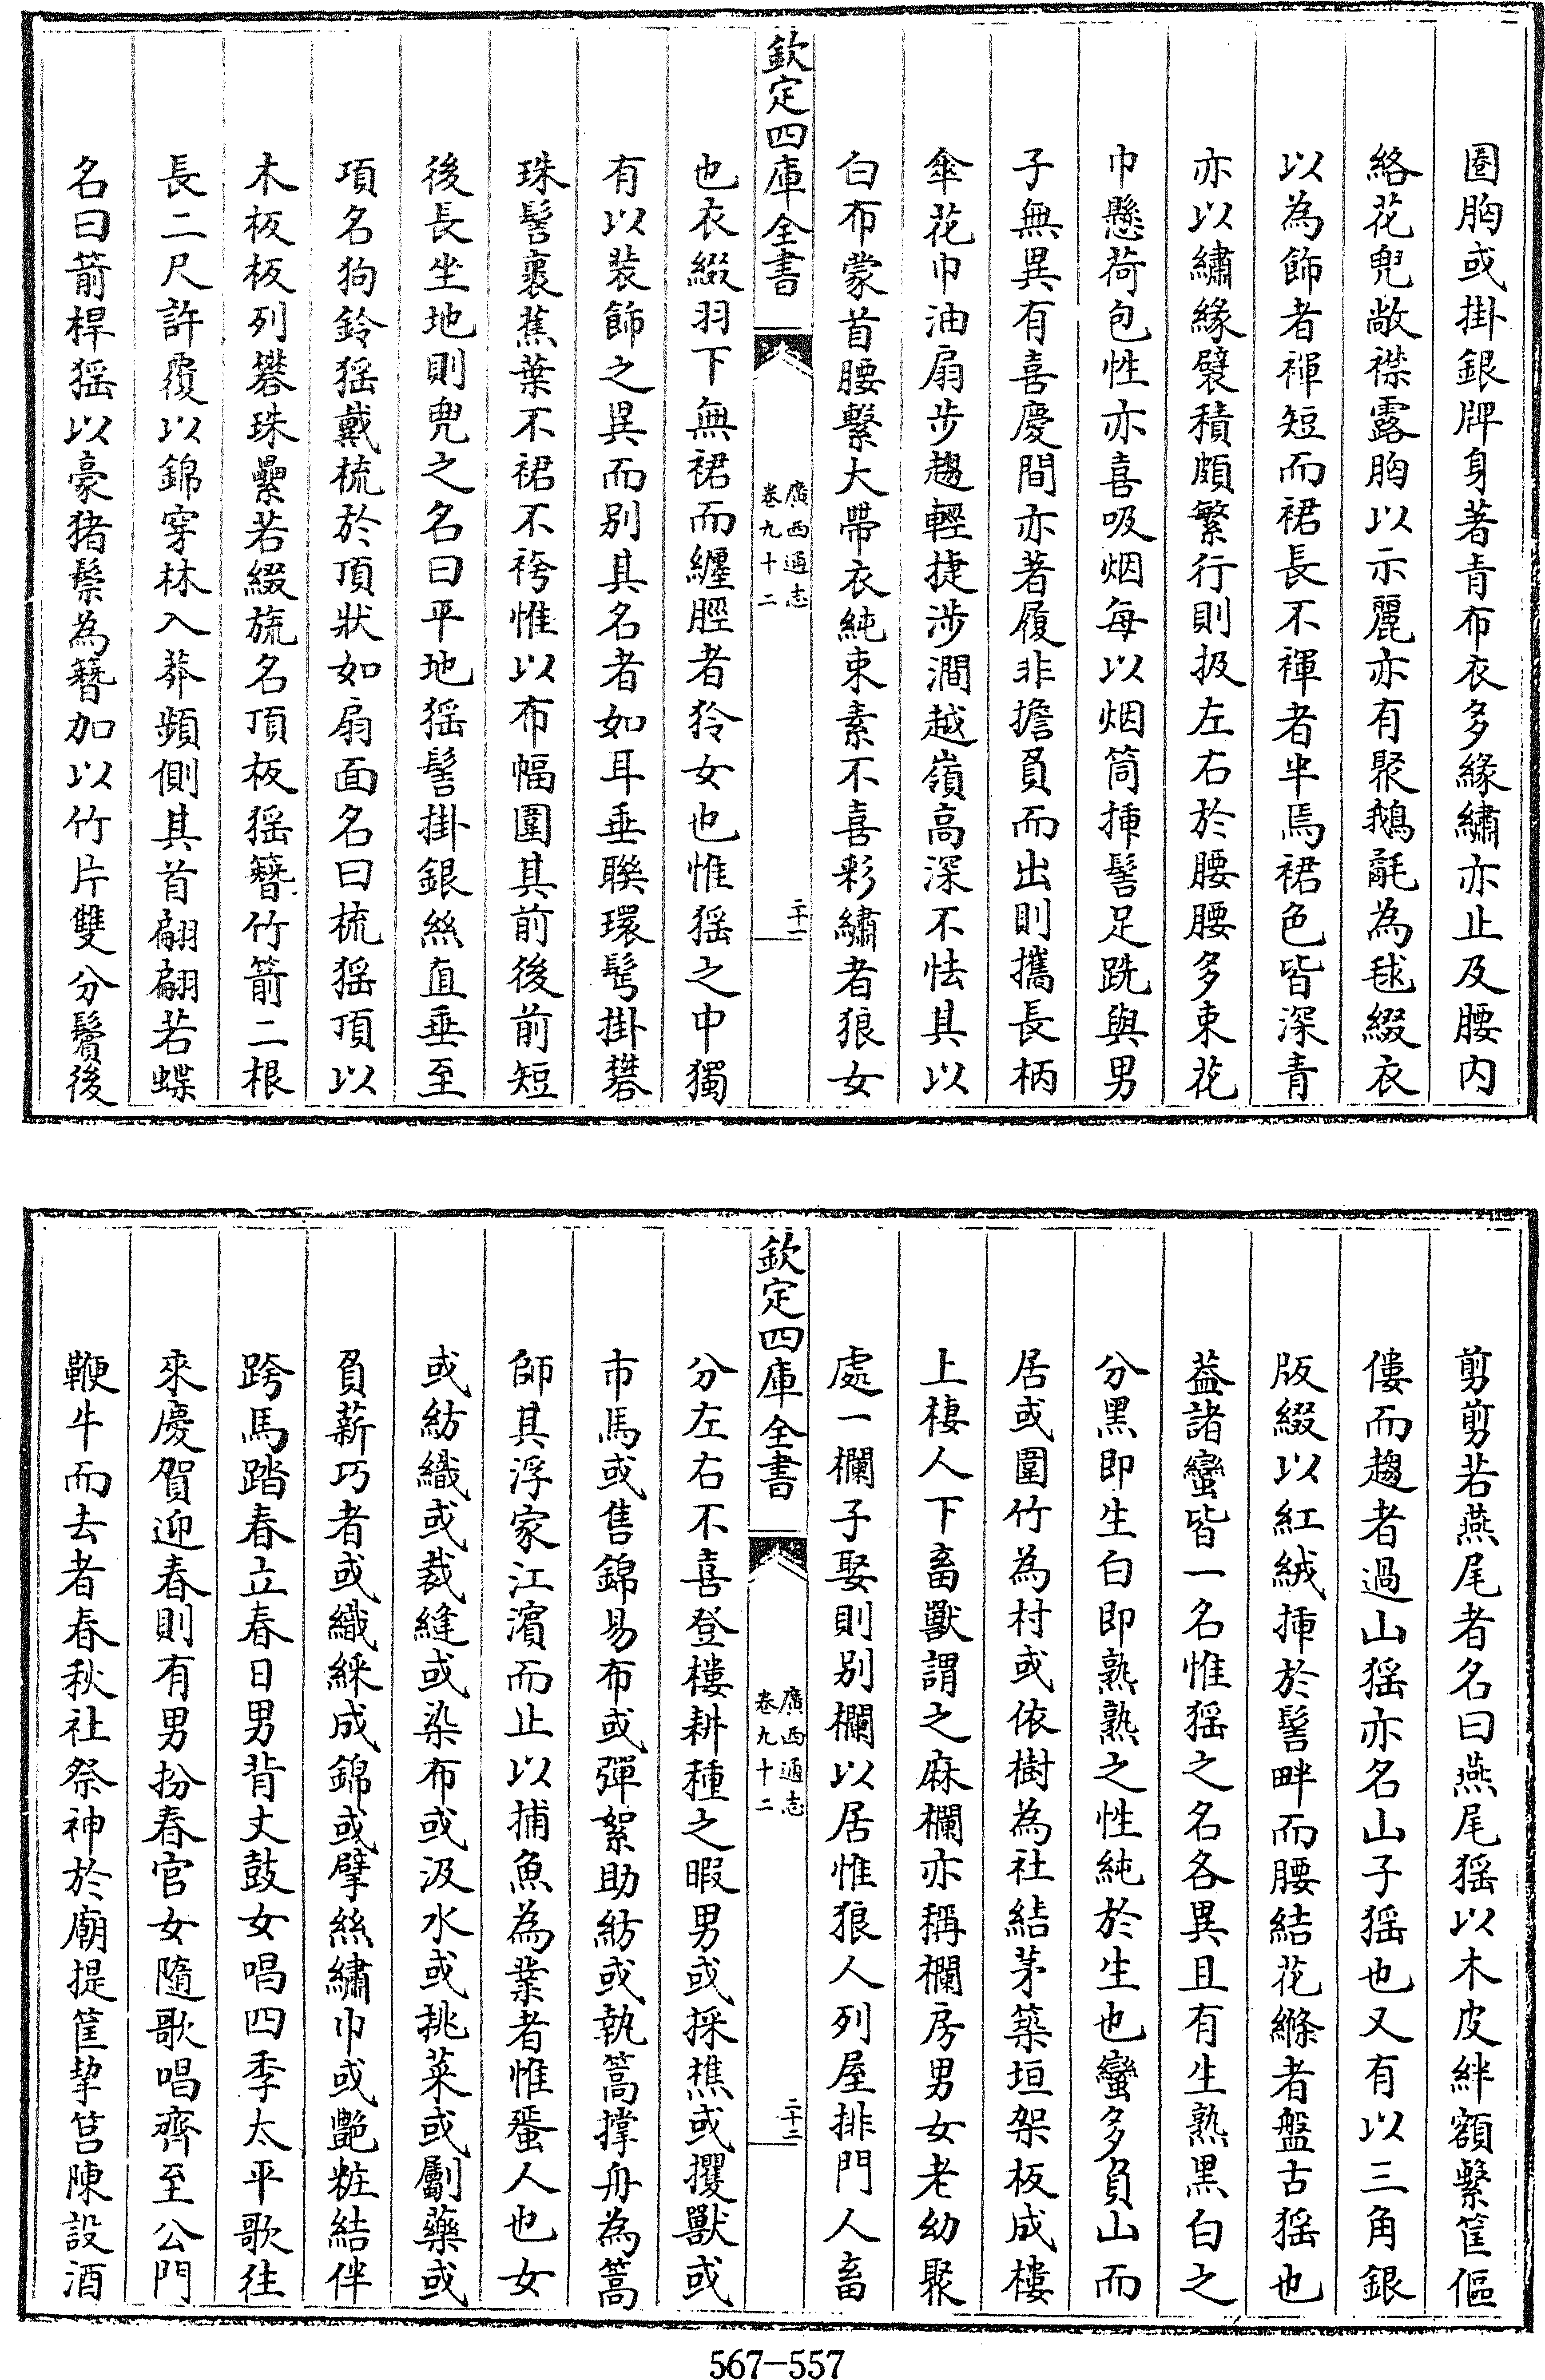 圈胸或掛銀牌身著青布衣多緣繡亦止及腰内
絡花兜敞襟露胸以示麗亦有聚鵝毻為毬綴衣
以為飾者褌短而裙長不褌者半焉裙色皆深青
亦以繡緣襞積頗繁行則扱左右於腰腰多束花
巾懸荷包性亦喜吸烟每以烟筒揷髻足跣與男
子無異有喜慶間亦著履非擔負而出則攜長柄
傘花巾油扇步趨輕捷涉澗越嶺高深不怯其以
白布蒙首腰繫大帶衣純束素不喜彩繡者狼女
欽定四庫全書
廣西通志
卷九十二
二十一
也衣綴羽下無裙而纏脛者狑女也惟猺之中獨
有以裝飾之異而别其名者如耳垂聨環髩掛礬
珠髻裹蕉葉不裙不袴惟以布幅圍其前後前短
後長坐地則兜之名曰平地猺髻掛銀絲直垂至
項名狗鈴猺戴梳於頂狀如扇面名曰梳猺頂以
木板板列礬珠纍若綴旒名頂板猺簪竹箭二根
長二尺許覆以錦穿林入莽頻側其首翩翩若蝶
名曰箭桿猺以豪猪鬃為簪加以竹片雙分鬢後
剪剪若燕尾者名曰燕尾猺以木皮絆額繫筐傴
僂而趨者過山猺亦名山子猺也又有以三角銀
版綴以紅絨揷於髻畔而腰結花縧者盤古猺也
葢諸蠻皆一名惟猺之名各異且有生熟黑白之
分黑即生白即熟熟之性純於生也蠻多負山而
居或圍竹為村或依樹為社結茅築垣架板成樓
上棲人下畜獸謂之麻欄亦稱欄房男女老幼聚
處一欄子娶則别欄以居惟狼人列屋排門人畜
欽定四庫全書
廣西通志
卷九十二
二十二
分左右不喜登樓耕種之暇男或採樵或玃獸或
市馬或售錦易布或彈絮助紡或執篙撑舟為篙
師其浮家江濵而止以捕魚為業者惟蜑人也女
或紡織或裁縫或染布或汲水或挑菜或劚藥或
負薪巧者或織綵成錦或擘絲繡巾或艶粧結伴
跨馬踏春立春日男背丈鼓女唱四季太平歌往
來慶賀迎春則有男扮春官女隨歌唱齊至公門
鞭牛而去者春秋社祭神於廟提筐挈筥陳設酒
567—557